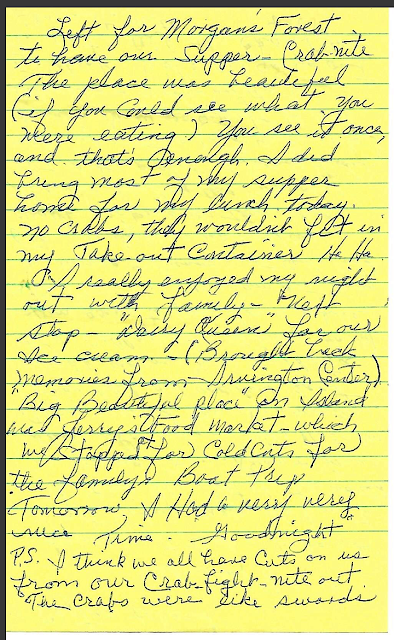 Left for Morgans Forest
to have our Supper - Crab-nite
The place was beautiful
(if you could see what you
were eating) You see it once,
and that's enough. I did
bring most of my supper
home for my lunch today.
no crabs, they wouldn't fit in
my Take-out Container Ha Ha.
I really enjoyed my night
out with family - Next
stop - "Dairy Queen" for our
Ice cream - (Brought back
memories from - Irvington Center)
"Big Beautiful place" on Island
was Jerry's Food Market - which
we stopped for ColdCuts for
the family Boat Trip
Tomorrow. I Had a very very
nice Time. Goodnight
P.S. I think we all have Cuts on us
from our Crab-fight-nite out
The crabs were like swords